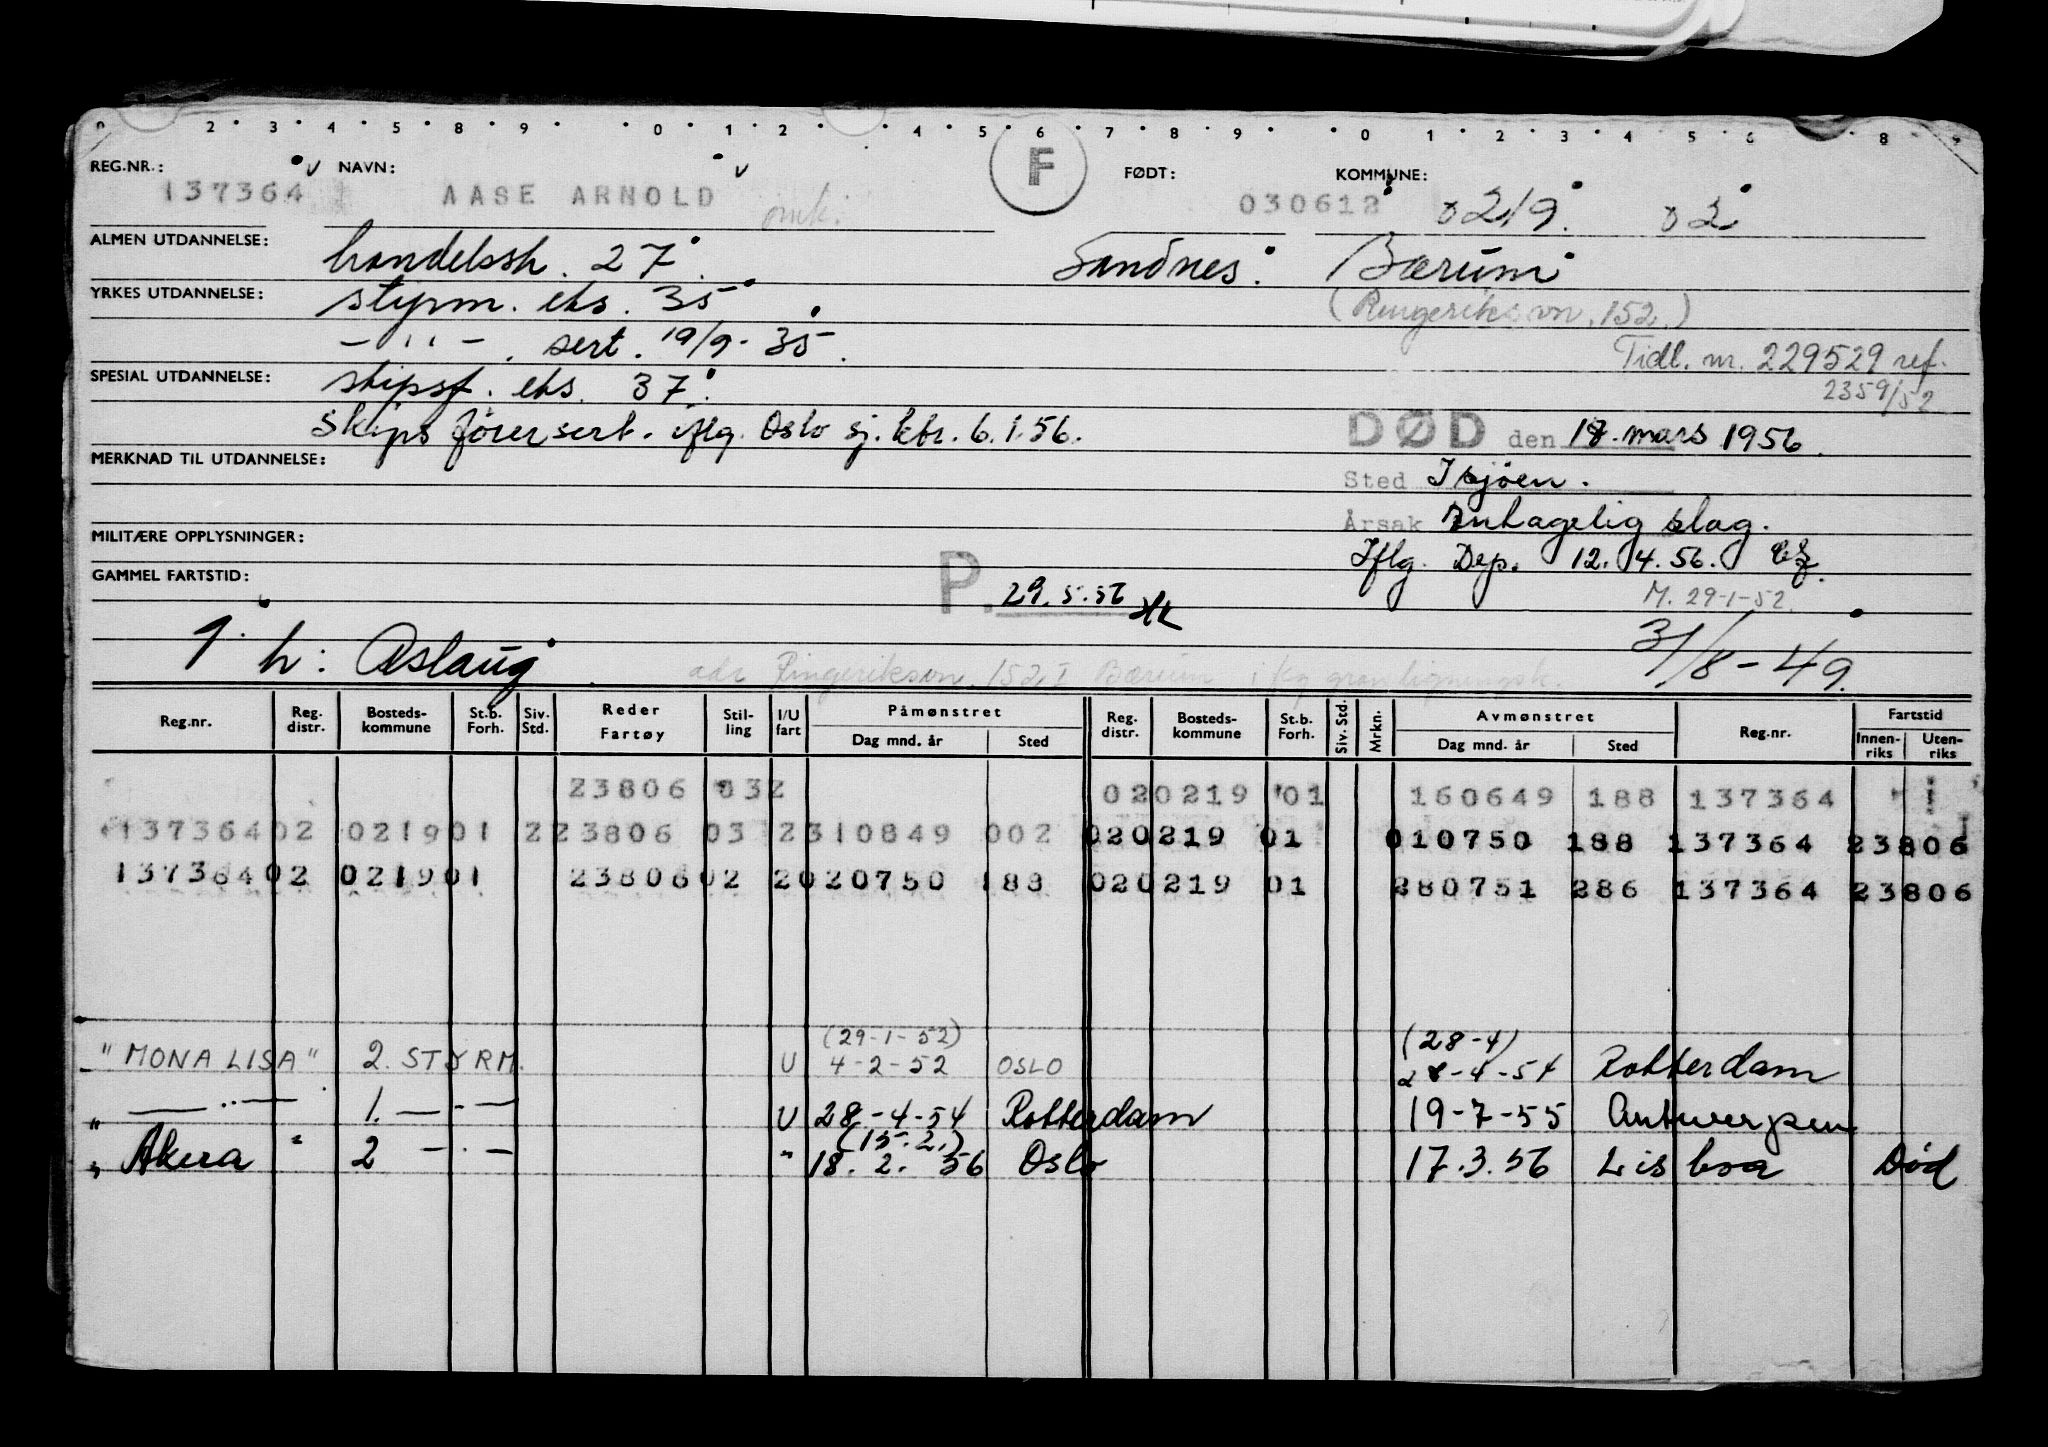 2 3 4 5 8 9 0 1 2 4 5 6 7 8 9 0 1 2 3 4 5 6 8 9
REG.NR.: NAVN: F FØDT: KOMMUNE:
137364 AASE ARNOLD omk. 030612 0219. 02
ALMEN UTDANNELSE: handelssk. 27. Sandnes. Bærum
YRKES UTDANNELSE: styrm. eks. 35 (Ringeriksvn. 152.)
— " — . sert. 19/9-35. Tidl. nr. 229529 ref.
SPESIAL UTDANNELSE: skipsf. eks. 37. 2359/52
Skipsförersert. iflg. Oslo sj. ktr. 6.1.56. DØD den 18. mars 1956.
MERKNAD TIL UTDANNELSE:
Sted I sjöen.
Årsak Antagelig slag.
MILITÆRE OPPLYSNINGER:
Iflg. Dep. 12.4.56.
GAMMEL FARTSTID: P. 29.5.56 M. 29-1-52.
1 h: Aslaug 31/8-49.
adr Ringeriksvn. 152 I Bærum
Reg.nr. Reg. distr. Bosteds-kommune St.b. Forh. Siv. Std. Reder Fartøy Stil-ling I/U fart Påmønstret Dag mnd. år Sted Reg. distr. Bosteds-kommune St.b. Forh. Siv. Std. Mrkn. Avmønstret Dag mnd. år Sted Reg.nr. Fartstid Innen-riks Uten-riks
23806 032 020219 01 160649 188 137364
137364 02 0219 01 2 23806 03 2 310849 002 020219 01 010750 188 137364 23806
137364 02 0219 01 23806 02 2 020750 188 020219 01 280751 286 137364 23806
(29-1-52) (28-4)
"MONA LISA" 2. STYRM. U 4-2-52 OSLO 28-4-54 Rotterdam
" — " — 1. — " — U 28-4-54 Rotterdam 19-7-55 Antwerpen
(15.2.)
" Akera " 2 — " — " 18. 2. 56 Oslo 17.3.56 Lisboa Død